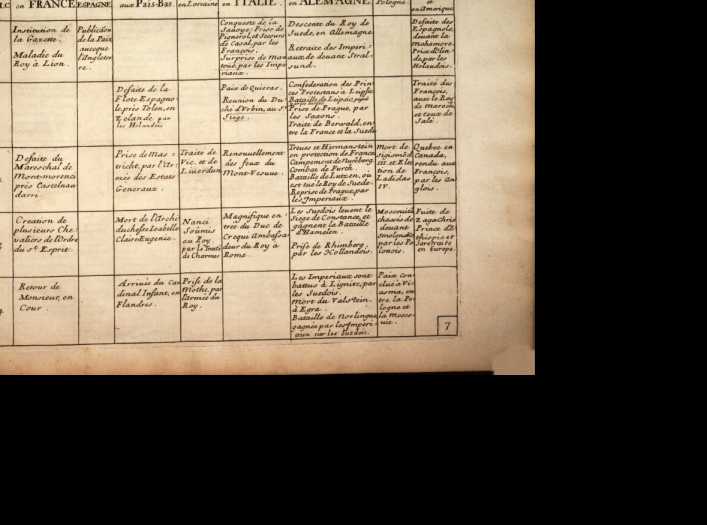 en FRANCE
ESPAGNE
aux Païs-Bas
en Lorraine
en ITALIE.
en ALEMAGNE
Pologne
et
en Amerique
Institution de
la Gazette.
Maladie du
Roy à Lion.
Publication
de la Paix
avecque
l'Angleter
re.
Conqueste de la
Savoye; Prise de
Pignerol, et Secours
de Casal, par les
François.
Surprise de Man
toue, par les Impe
riaux.
Descente du Roy de
Suede, en Allemagne.
Retraite des Imperi
aux de devant Stral
sund.
Defaite des
Espagnols,
devant la
de par les
Holandois.
Defaite de la
Flote Espagno
le, près Tolen, en
Zelande, par
les Holandois
Paix de Quieras.
Reunion du Du
ché d'Urbin, au St
Siege.
Confederation des Prin
ces Protestans à Lipsic
Bataille de Leipsic
Prise de Prague, par
les Saxons.
Traité de Berwald, en
tre la France et la Suede
Traité des
François,
avec le Roy
de Maroc
et ceux de
Salé.
Defaite du
Mareschal de
Montmorenci
près Castelnau
darri.
Prise de Mas
tricht, par l'Ar
mée des Estats
Generaux.
Traité de
Vic, et de
Liverdun
Renouvellement
des feux du
Mont-Vesuve.
Treves et Hirmanstein
en protection de France
Campement de Nurēberg
Combat de Furth.
Bataille de Lutzen, où
est tué le Roy de Suede.
Reprise de Prague, par
les Imperiaux.
Mort de
Sigismōd
III. et Elec
tion de
Ladislas
IV.
Quebec en
Canada,
rendu aux
François,
par les An
glois.
Creation de
plusieurs Che
valiers de l'Ordre
du St. Esprit.
Mort de l'Archi
duchesse Isabelle
Claire Eugenie.
Nanci
Soûmis
au Roy
par le Traité
de Charmes
Magnifique en
trée du Duc de
Crequi Ambassa
deur du Roy à
Rome.
Les Suedois levent le
Siege de Constance, et
gagnent la Bataille
d'Hamelen.
Prise de Rhimberg,
par les Hollandois.
Moscovites
chassés de
devant
Smolensko
par les Po
lonois.
Fuite de
Zagachrist
Prince d'E
thiopie et
Sa retraite
en Europe.
Retour de
Monsieur, en
Cour.
Arrivée du Car
dinal Infant, en
Flandres.
Prise de la
Mothe, par
l'Armée du
Roy.
Les Imperiaux sont
battus à Lignitz, par
les Suedois.
Mort du Valstein,
à Egra.
Bataille de Norlingue
gagnée par les Imperi
aux sur les Suedois.
Paix con
clue à Vi
asma, en
tre la Po
logne et
la Mosco
vie.
7